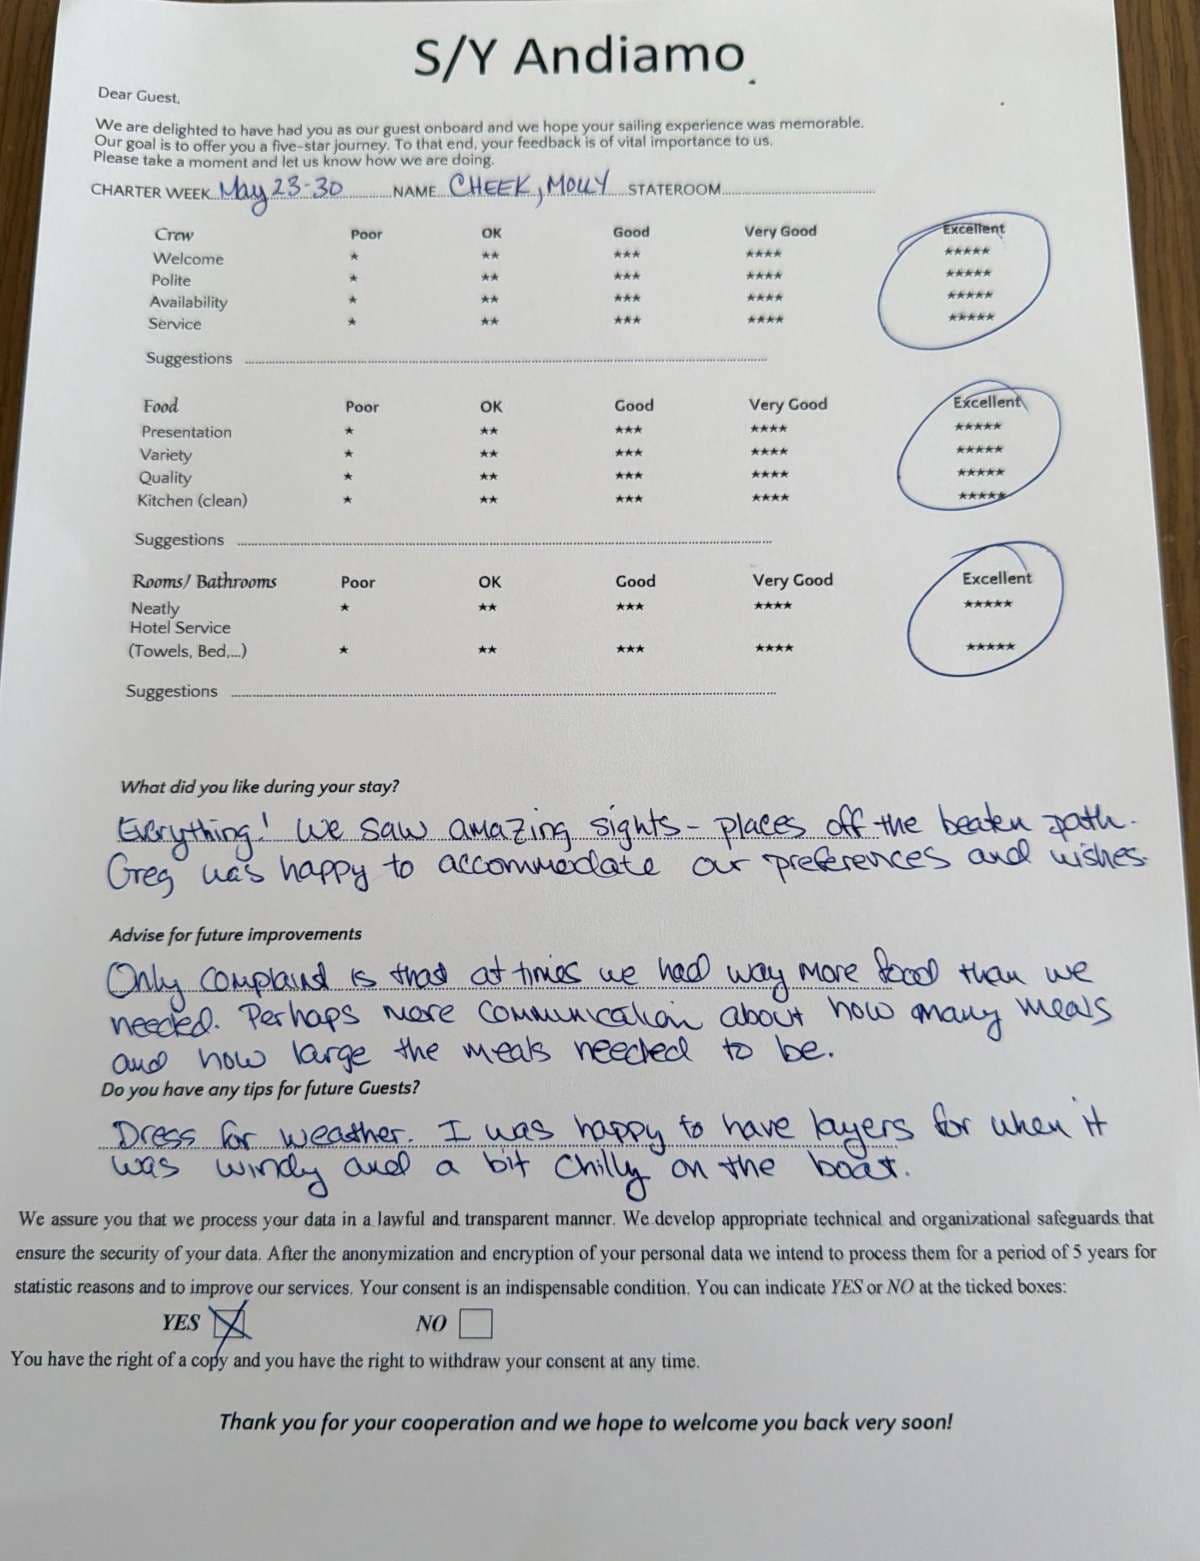 S/Y Andiamo
Dear Guest,
We are delighted to have had you as our guest onboard and we hope your sailing experience was memorable.
Our goal is to offer you a five-star journey. To that end, your feedback is of vital importance to us.
Please take a moment and let us know how we are doing.
CHARTER WEEK May 23-30 NAME CHEEK, MOLLY STATEROOM
Crew Poor OK Good Very Good Excellent
Welcome ★ ★★ ★★★ ★★★★ ★★★★★
Polite ★ ★★ ★★★ ★★★★ ★★★★★
Availability ★ ★★ ★★★ ★★★★ ★★★★★
Service ★ ★★ ★★★ ★★★★ ★★★★★
Suggestions
Food Poor OK Good Very Good Excellent
Presentation ★ ★★ ★★★ ★★★★ ★★★★★
Variety ★ ★★ ★★★ ★★★★ ★★★★★
Quality ★ ★★ ★★★ ★★★★ ★★★★★
Kitchen (clean) ★ ★★ ★★★ ★★★★ ★★★★★
Suggestions
Rooms/ Bathrooms Poor OK Good Very Good Excellent
Neatly ★ ★★ ★★★ ★★★★ ★★★★★
Hotel Service
(Towels, Bed,...) ★ ★★ ★★★ ★★★★ ★★★★★
Suggestions
What did you like during your stay?
Everything! We saw amazing sights - places off the beaten path.
Greg was happy to accommodate our preferences and wishes.
Advise for future improvements
Only complaint is that at times we had way more food than we
needed. Perhaps more communication about how many meals
and how large the meals needed to be.
Do you have any tips for future Guests?
Dress for weather. I was happy to have layers for when it
was windy and a bit chilly on the boat.
We assure you that we process your data in a lawful and transparent manner. We develop appropriate technical and organizational safeguards that
ensure the security of your data. After the anonymization and encryption of your personal data we intend to process them for a period of 5 years for
statistic reasons and to improve our services. Your consent is an indispensable condition. You can indicate YES or NO at the ticked boxes:
YES NO
You have the right of a copy and you have the right to withdraw your consent at any time.
Thank you for your cooperation and we hope to welcome you back very soon!